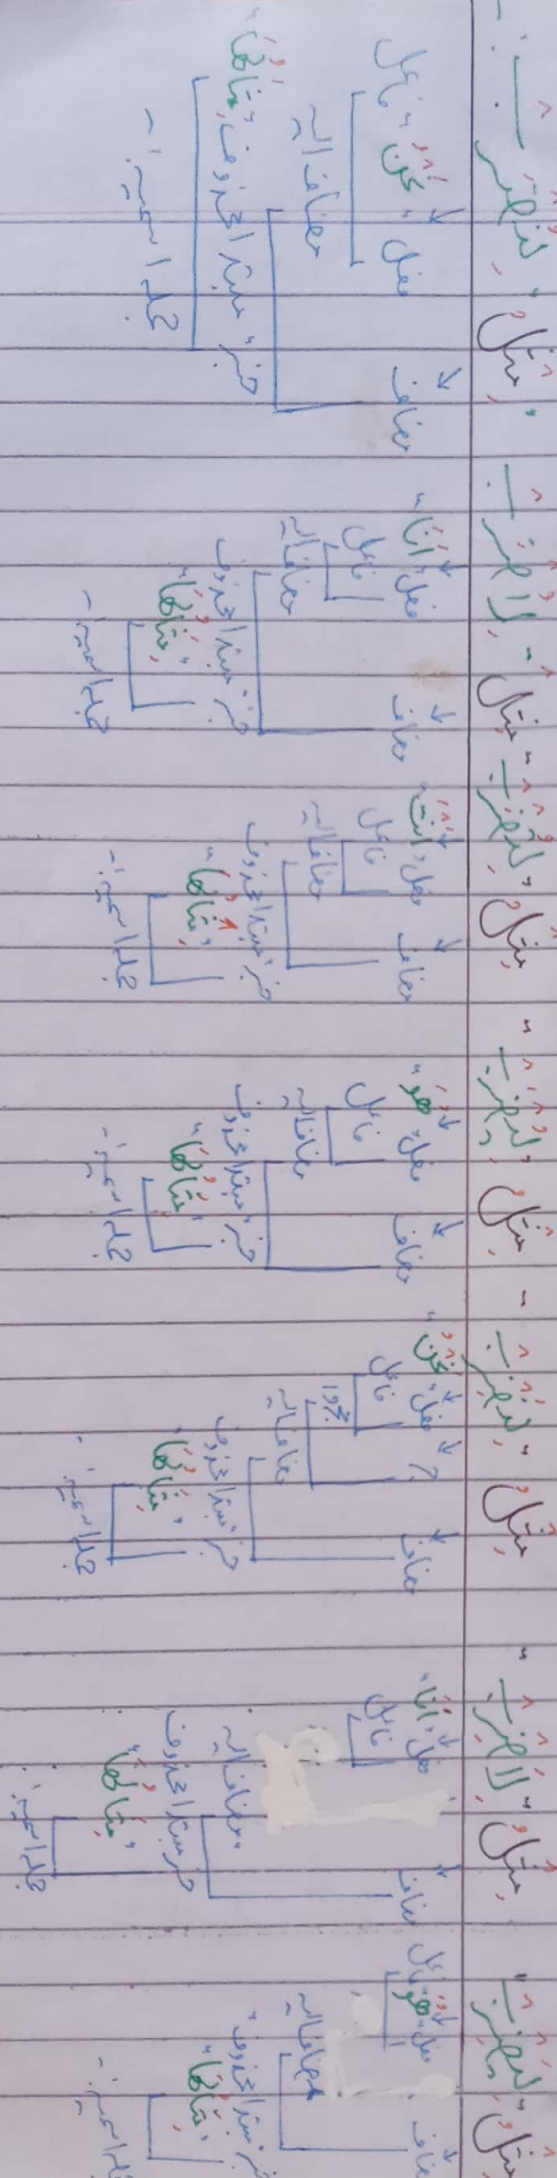 مِثَالُ „ لِنَضْرِبَ „
مضاف
فعل „ نَحْنُ „ فاعل
مضاف الیہ
خبر „ مبتدا محذوف „ مِثَالُهَا „
جملہ اسمیہ :-
مِثَالُ „ لِاَضْرِبَ „
مضاف
فعل „ اَنَا „
فاعل
مضاف الیہ
خبر „ مبتدا محذوف
„ مِثَالُهَا „
جملہ اسمیہ :-
مِثَالُ „ لِتَضْرِبَ „
مضاف
فعل „ اَنْتَ „
فاعل
مضاف الیہ
خبر „ مبتدا محذوف
„ مِثَالُهَا „
جملہ اسمیہ :-
مِثَالُ „ لِيَضْرِبَ „
مضاف
فعل „ هُوَ „
فاعل
مضاف الیہ
خبر „ مبتدا محذوف
„ مِثَالُهَا „
جملہ اسمیہ :-
مِثَالُ „ لِنَضْرِبَ „
مضاف
فعل „ نَحْنُ „
فاعل
مجرور
مضاف الیہ
خبر „ مبتدا محذوف
„ مِثَالُهَا „
جملہ اسمیہ :-
مِثَالُ „ لِاَضْرِبَ „
مضاف
فعل „ اَنَا „
فاعل
مضاف الیہ
خبر مبتدا محذوف
„ مِثَالُهَا „
جملہ اسمیہ :-
مِثَالُ „ لِيَضْرِبَ „
مضاف
فعل „ هُوَ „ فاعل
مضاف الیہ
خبر مبتدا محذوف „
„ مِثَالُهَا „
جملہ اسمیہ :-